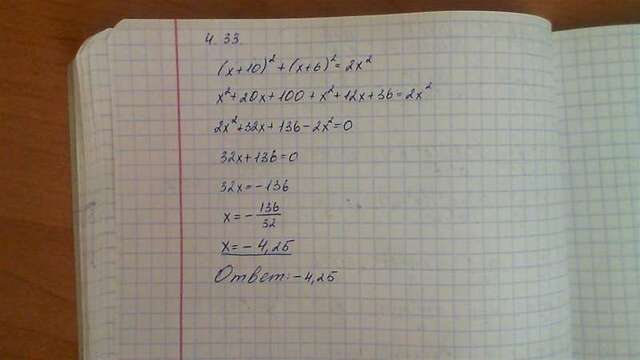 4.33.
(x+10)²+(x+6)²=2x²
x²+20x+100+x²+12x+36=2x²
2x²+32x+136-2x²=0
32x+136=0
32x=-136
x=-136/32
x=-4,25
Ответ:-4,25